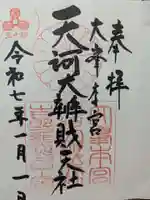 奉拝
大峯本宮
天河大辨財天社
令和七年一月一日